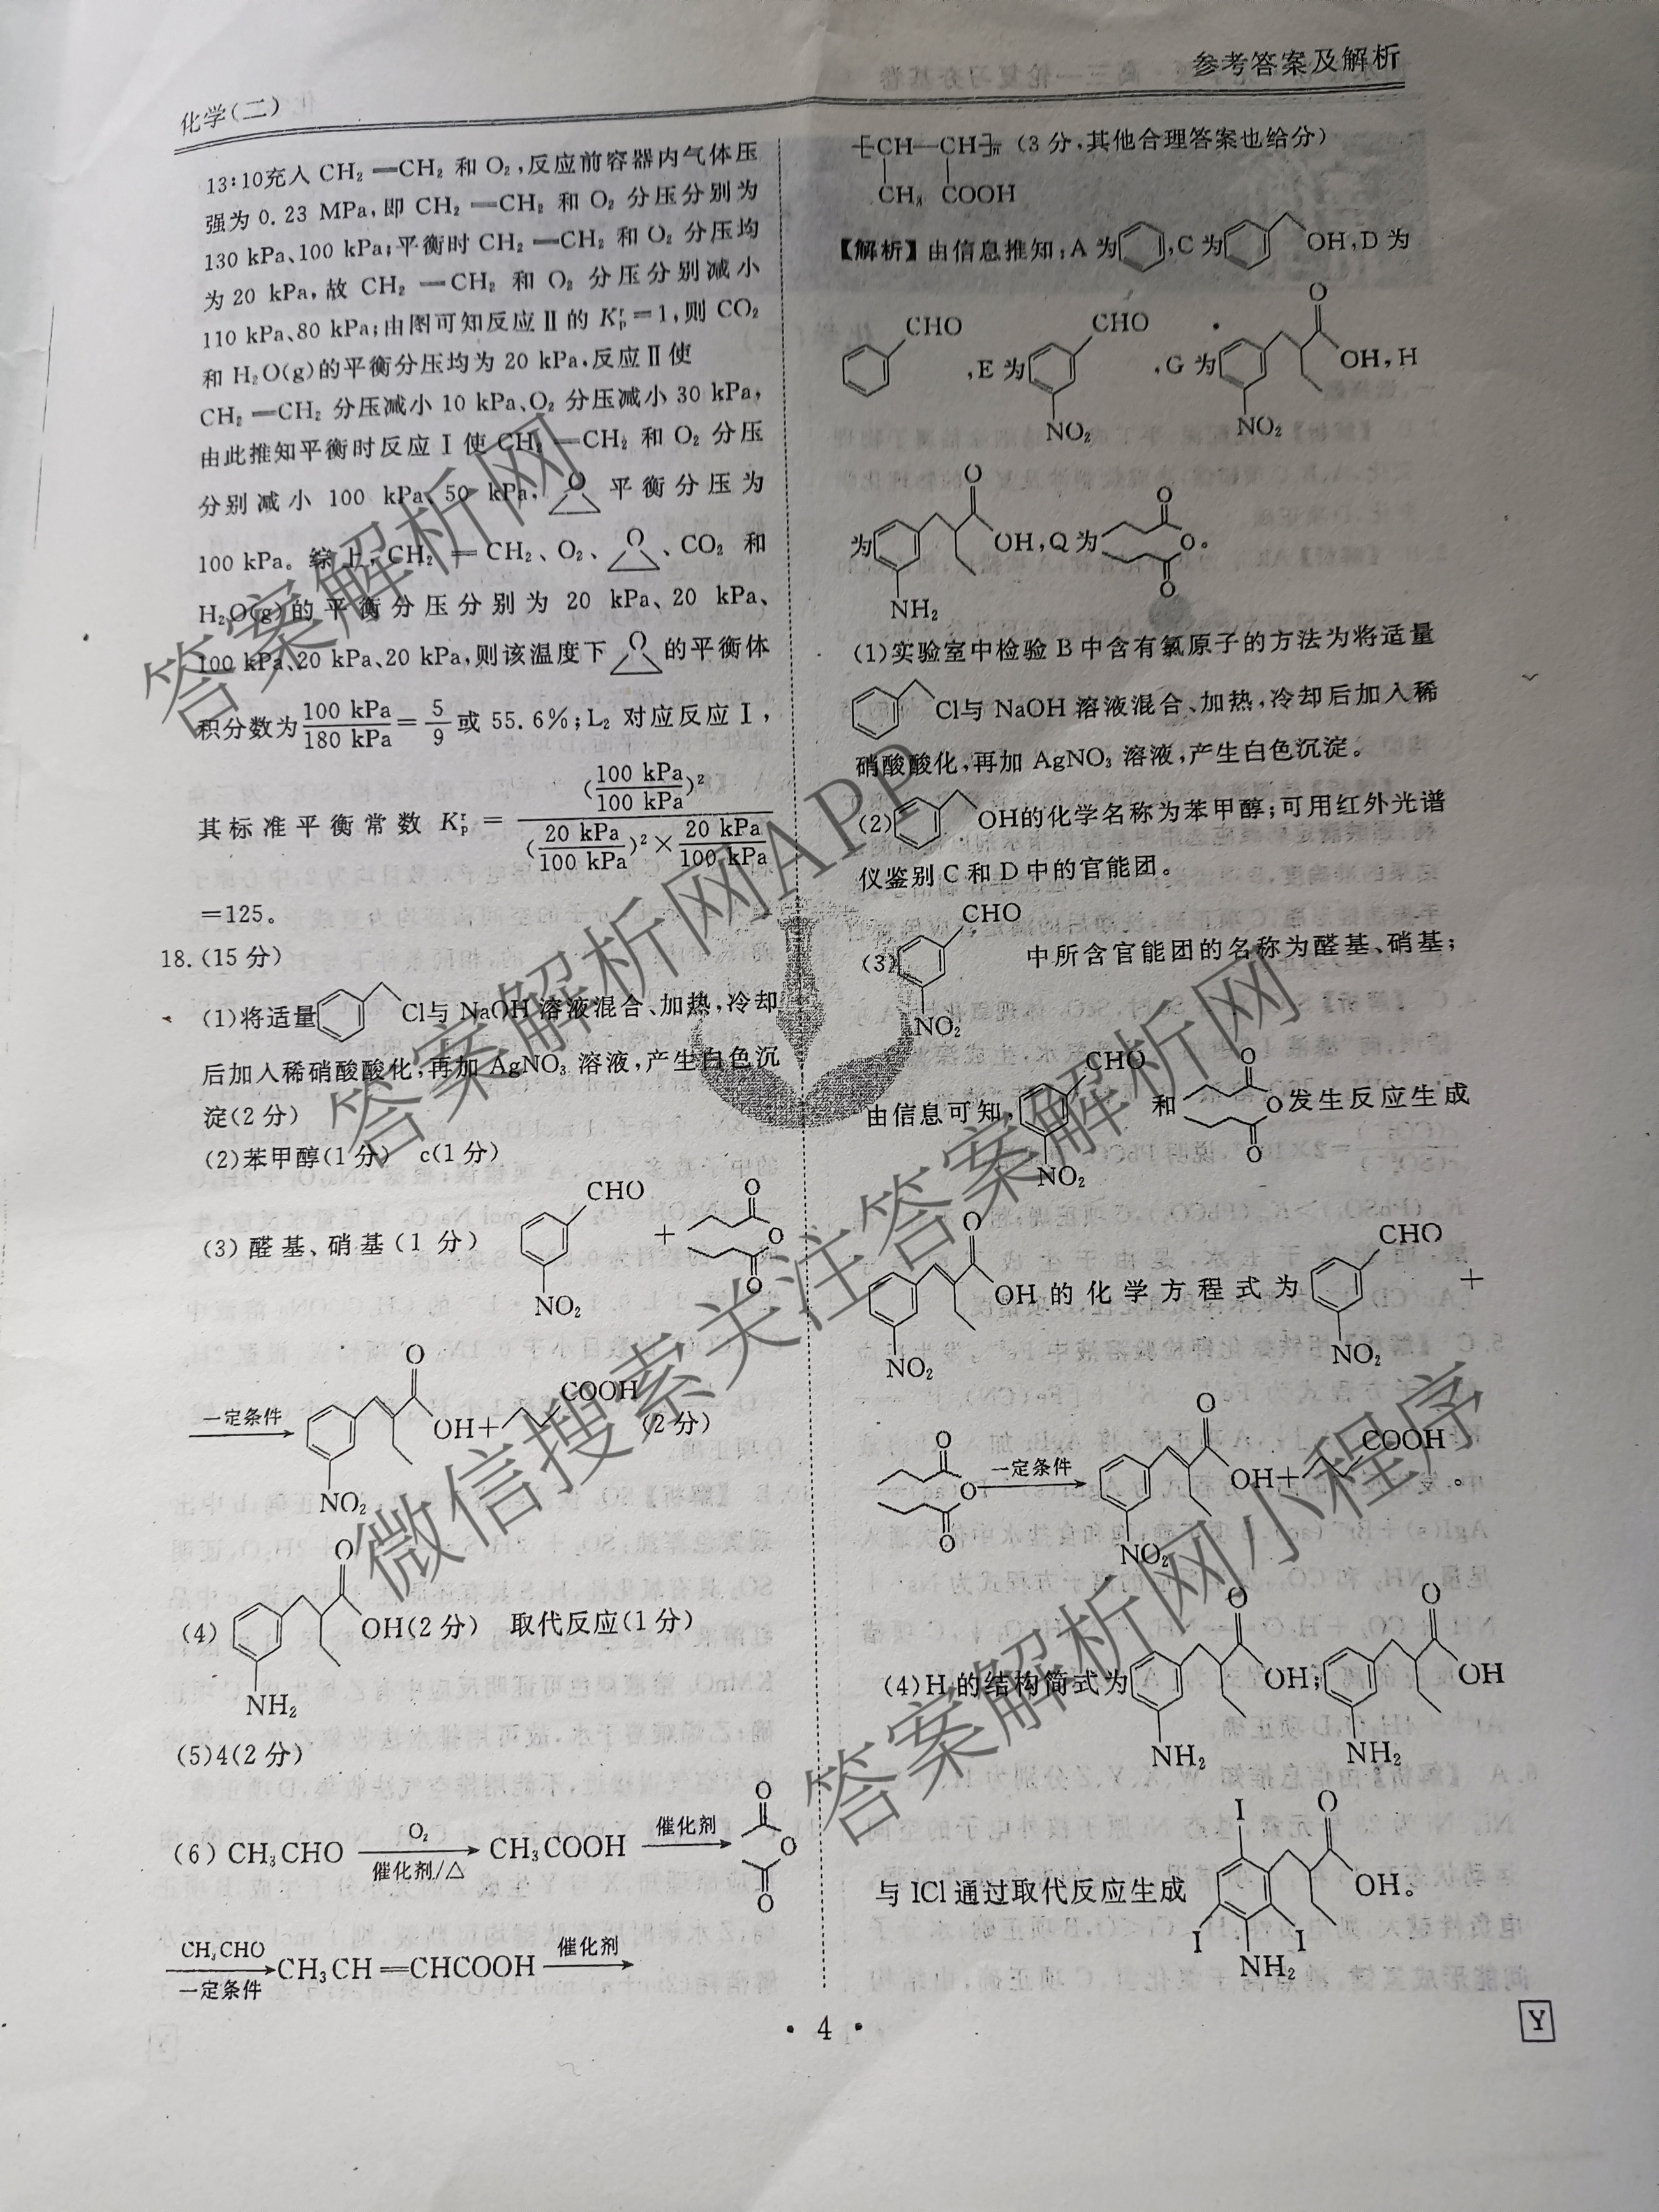 化学(二)
参考答案及解析
13∶10充入 CH₂═CH₂ 和 O₂,反应前容器内气体压
强为 0.23 MPa,即 CH₂═CH₂ 和 O₂ 分压分别为
130 kPa、100 kPa;平衡时 CH₂═CH₂ 和 O₂ 分压均
为 20 kPa,故 CH₂═CH₂ 和 O₂ 分压分别减小
110 kPa、80 kPa;由图可知反应Ⅱ的 Kᵣₚ=1,则 CO₂
和 H₂O(g)的平衡分压均为 20 kPa,反应Ⅱ使
CH₂═CH₂ 分压减小 10 kPa、O₂ 分压减小 30 kPa,
由此推知平衡时反应Ⅰ使 CH₂═CH₂ 和 O₂ 分压
分别减小 100 kPa、50 kPa, O 平衡分压为
100 kPa。综上,CH₂═CH₂、O₂、 O 、CO₂ 和
H₂O(g)的平衡分压分别为 20 kPa、20 kPa、
100 kPa、20 kPa、20 kPa,则该温度下 O 的平衡体
积分数为 100 kPa/180 kPa = 5/9 或 55.6%;L₂ 对应反应Ⅰ,
其标准平衡常数 Kᵣₚ = (100 kPa/100 kPa)² / (20 kPa/100 kPa)² × 20 kPa/100 kPa
=125。
18.(15 分)
(1)将适量 Cl与 NaOH 溶液混合、加热,冷却
后加入稀硝酸酸化,再加 AgNO₃ 溶液,产生白色沉
淀(2 分)
(2)苯甲醇(1 分) c(1 分)
(3)醛基、硝基(1 分) CHO NO₂ + O O O
一定条件 O OH NO₂ + COOH (2 分)
(4) O OH NH₂ (2 分) 取代反应(1 分)
(5)4(2 分)
(6)CH₃CHO O₂ 催化剂/△ CH₃COOH 催化剂 O O O
CH₃CHO 一定条件 CH₃CH═CHCOOH 催化剂
[CH—CH]n (3 分,其他合理答案也给分)
CH₃ COOH
【解析】由信息推知:A 为 ,C 为 OH,D 为
CHO ,E 为 CHO NO₂ ,G 为 O OH NO₂ , H
为 O OH NH₂ ,Q 为 O O O 。
(1)实验室中检验 B 中含有氯原子的方法为将适量
Cl与 NaOH 溶液混合、加热,冷却后加入稀
硝酸酸化,再加 AgNO₃ 溶液,产生白色沉淀。
(2) OH的化学名称为苯甲醇;可用红外光谱
仪鉴别 C 和 D 中的官能团。
(3) CHO NO₂ 中所含官能团的名称为醛基、硝基;
由信息可知, CHO NO₂ 和 O O O 发生反应生成
O OH NO₂ 的化学方程式为 CHO NO₂ +
O O O 一定条件 O OH NO₂ + COOH 。
(4)H 的结构简式为 O OH NH₂ ; O OH NH₂
与 ICl 通过取代反应生成 I I I NH₂ O OH。
· 4 ·
Y
答案解析网
答案解析网APP
微信搜索关注答案解析网
答案解析网小程序